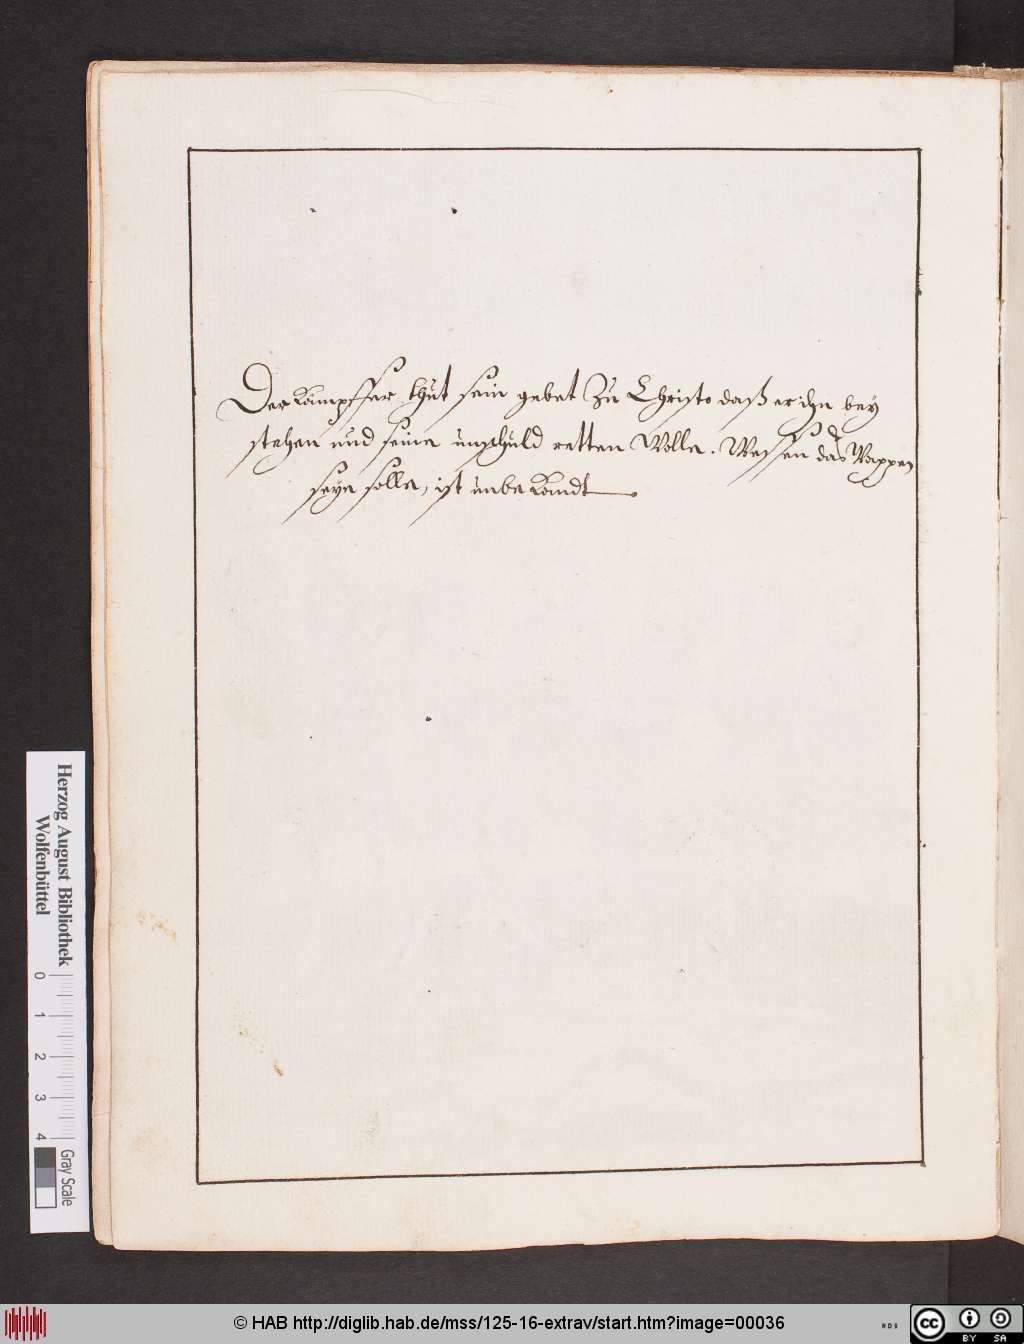 Der Kämpffer thut sein gebet Zu Christo daß er ihn bey
stehen und seine unschuld retten Wolle. Wessen das Wappen
seye solle, ist unbekandt
Herzog August Bibliothek
Wolfenbüttel
0 1 2 3 4
Gray Scale
© HAB http://diglib.hab.de/mss/125-16-extrav/start.htm?image=00036
cc BY SA